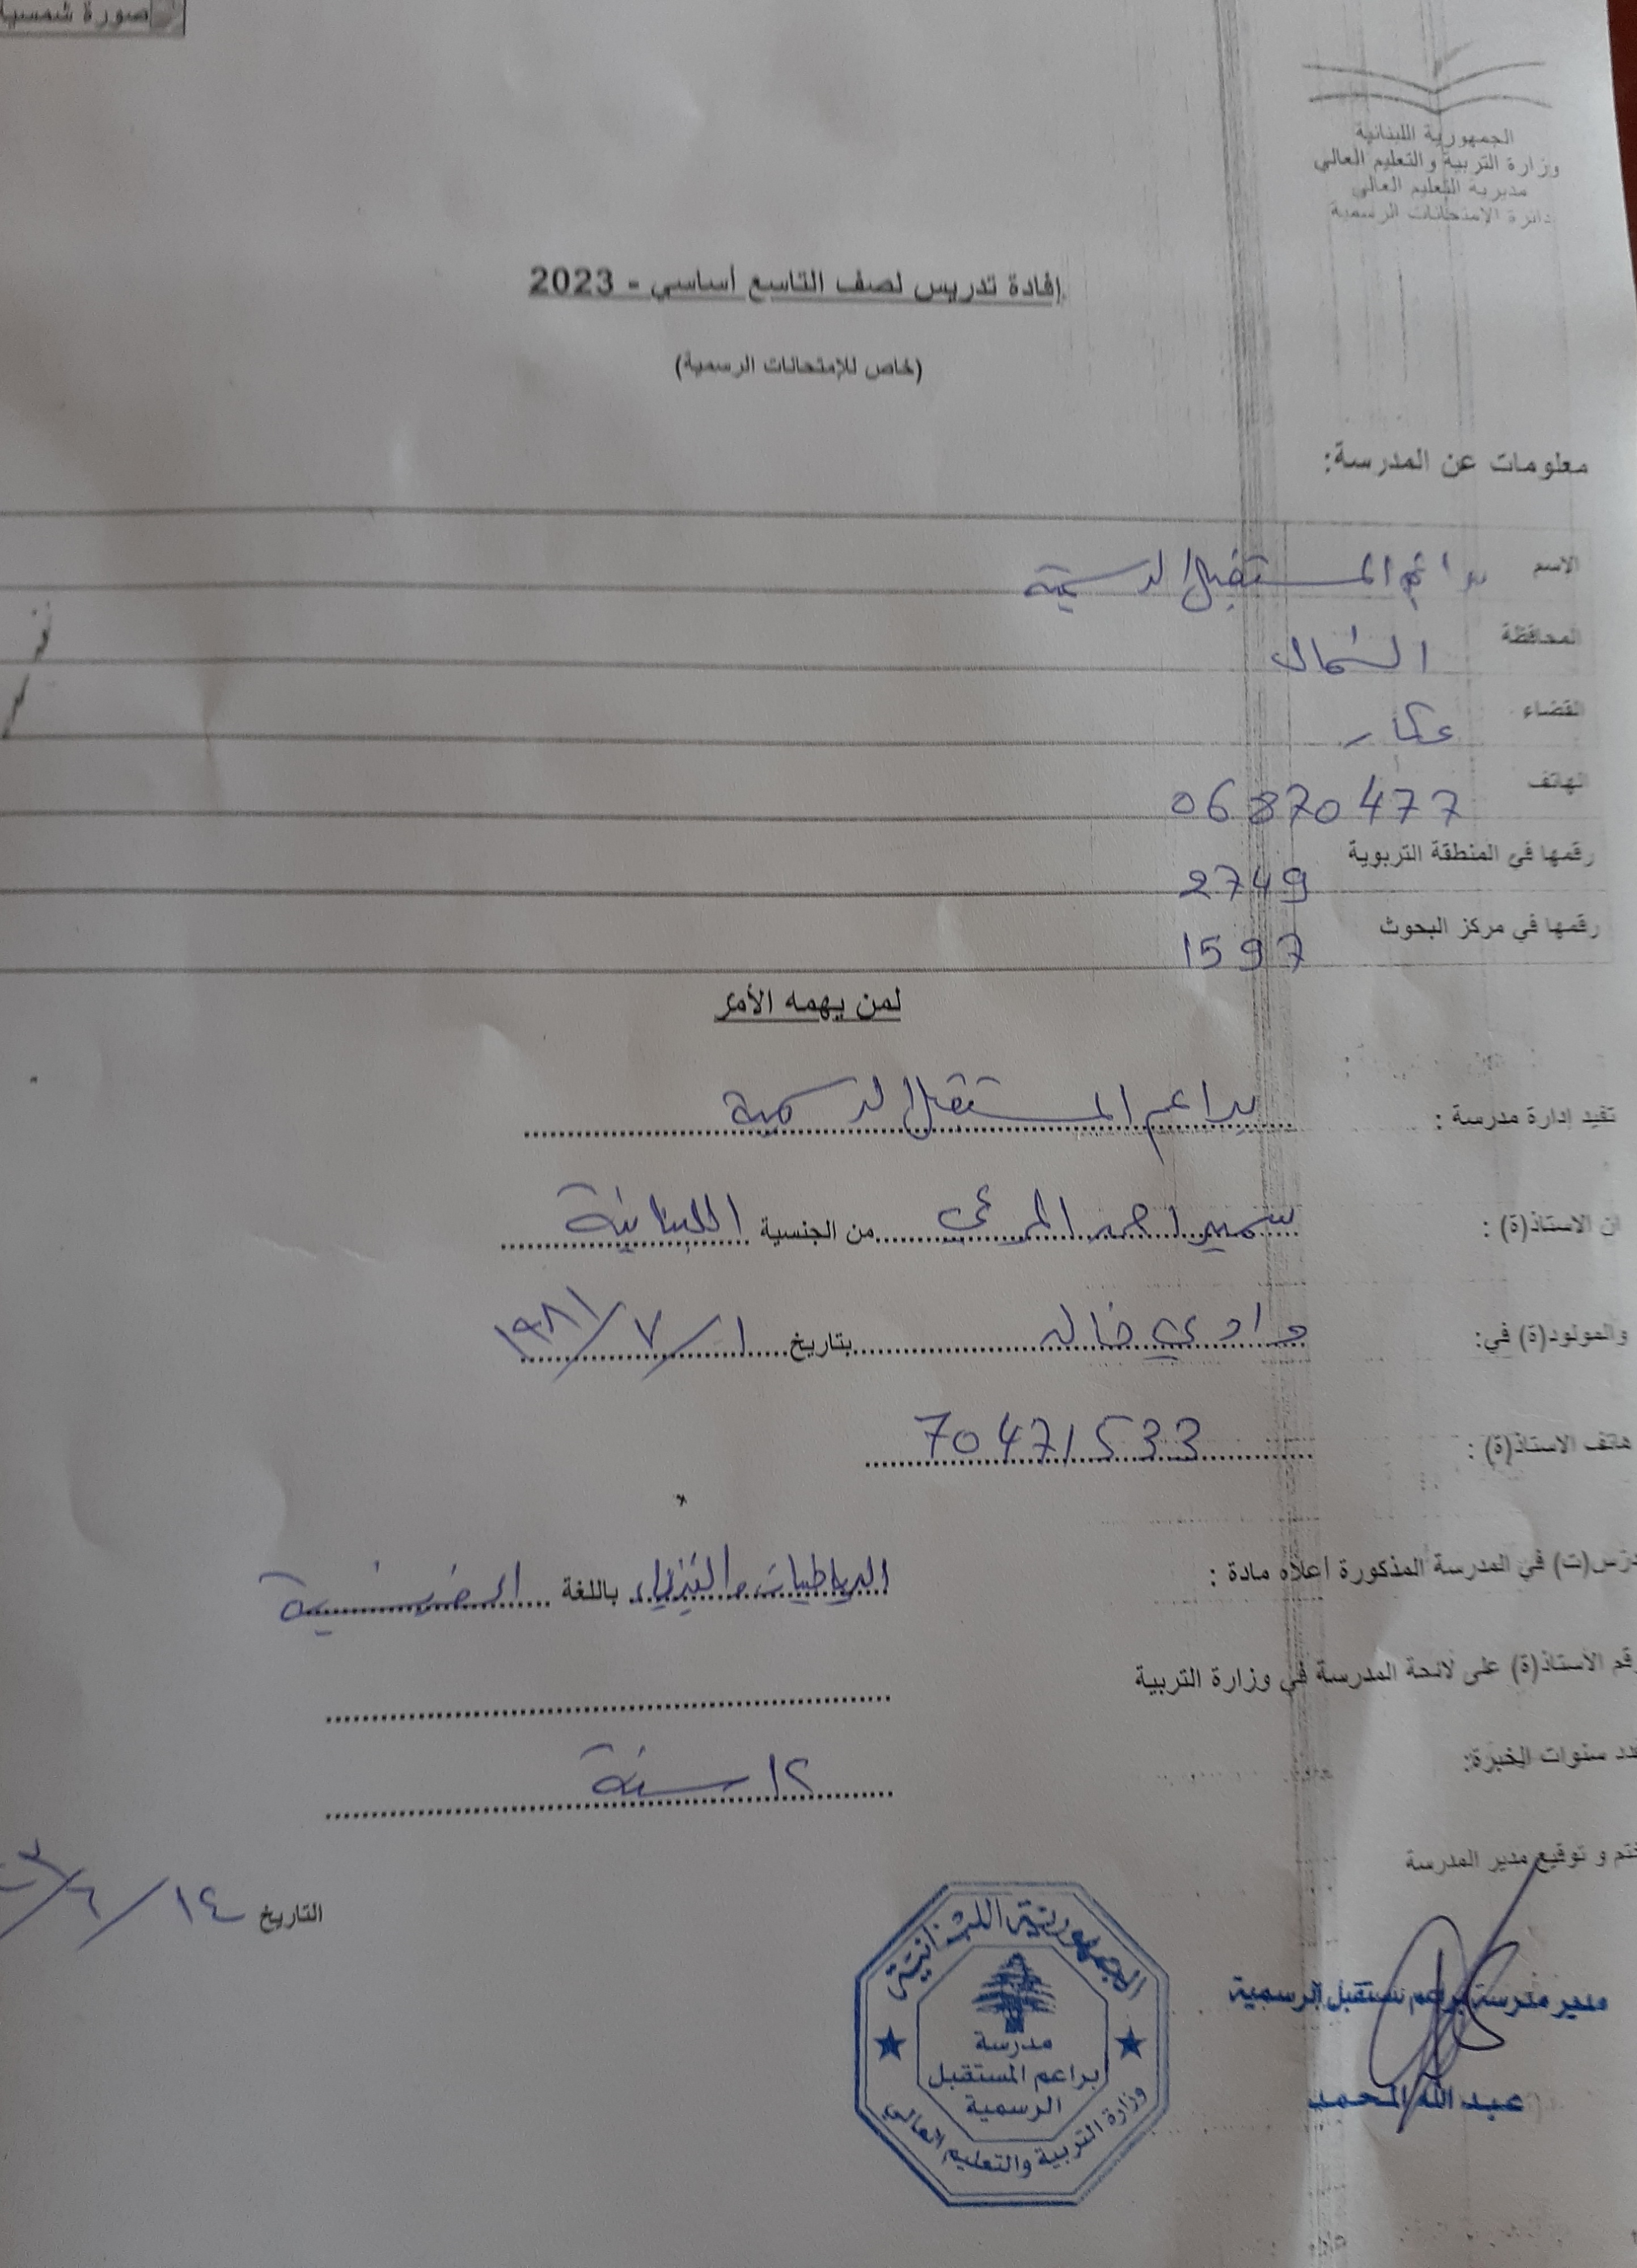 صورة شمسية
الجمهورية اللبنانية
وزارة التربية والتعليم العالي
مديرية التعليم العالي
دائرة الامتحانات الرسمية
إفادة تدريس لصف التاسع أساسي - 2023
(خاص للإمتحانات الرسمية)
معلومات عن المدرسة:
الاسم براعم المستقبل الرسمية
المحافظة الشمال
القضاء عكار
الهاتف 06870477
رقمها في المنطقة التربوية 2749
رقمها في مركز البحوث 1597
لمن يهمه الأمر
تفيد إدارة مدرسة : براعم المستقبل الرسمية
ان الاستاذ(ة) : سمير احمد المرعي من الجنسية اللبنانية
والمولود(ة) في: وادي خالد بتاريخ ١/٧/١٩٨١
هاتف الاستاذ(ة) : 70471533
درس(ت) في المدرسة المذكورة أعلاه مادة : الرياضيات والفيزياء باللغة الفرنسية
رقم الأستاذ(ة) على لائحة المدرسة في وزارة التربية
عدد سنوات الخبرة: ١٢ سنة
ختم و توقيع مدير المدرسة
التاريخ ١٤/٦/
الجمهورية اللبنانية
مدرسة
براعم المستقبل
الرسمية
وزارة التربية والتعليم العالي
مدير مدرسة براعم المستقبل الرسمية
عبدالله المحمد